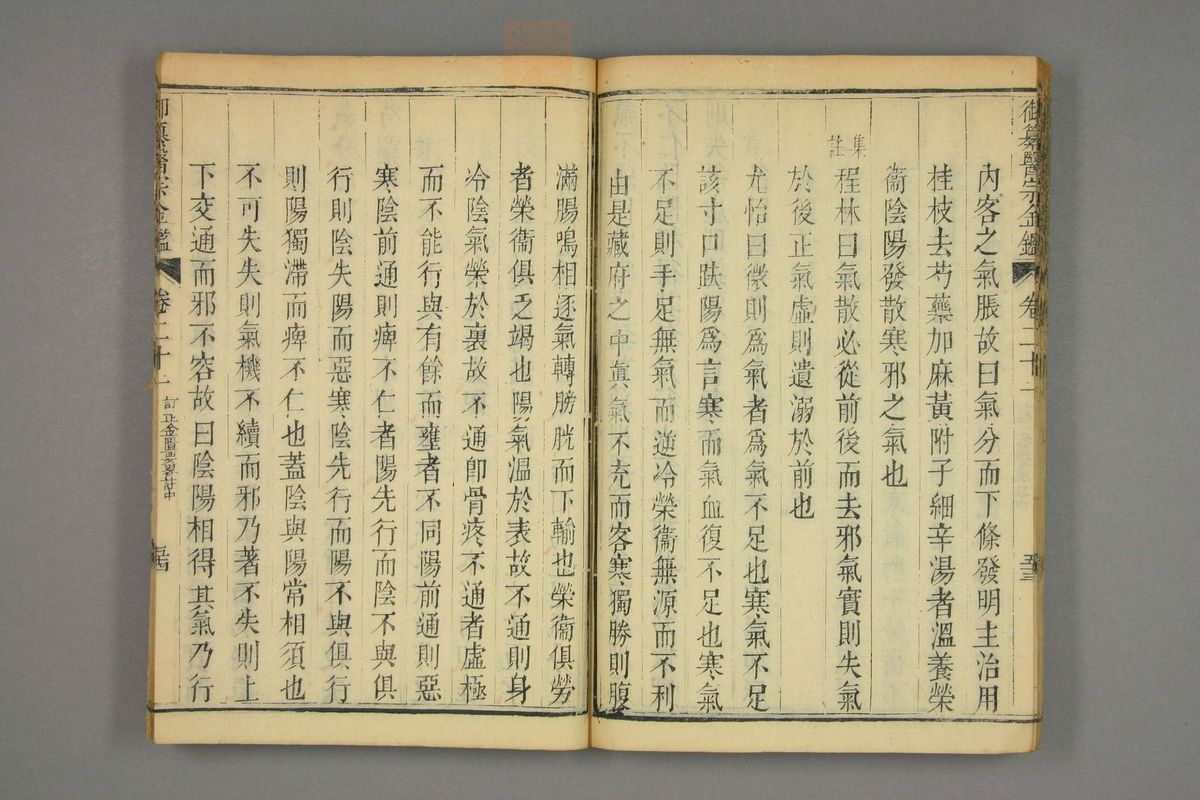 御纂醫宗金鑑 卷二十一 五三
內客之氣脹故曰氣分而下條發明主治用
桂枝去芍藥加麻黃附子細辛湯者溫養榮
衞陰陽發散寒邪之氣也
集註
程林曰氣散必從前後而去邪氣實則失氣
於後正氣虛則遺溺於前也
尤怡曰微則爲氣者爲氣不足也寒氣不足
該寸口趺陽爲言寒而氣血復不足也寒氣
不足則手足無氣而逆冷榮衞無源而不利
由是藏府之中眞氣不充而客寒獨勝則腹
滿腸鳴相逐氣轉膀胱而下輸也榮衞俱勞
者榮衞俱乏竭也陽氣溫於表故不通則身
冷陰氣榮於裏故不通卽骨疼不通者虛極
而不能行與有餘而壅者不同陽前通則惡
寒陰前通則痺不仁者陽先行而陰不與俱
行則陰失陽而惡寒陰先行而陽不與俱行
則陽獨滯而痺不仁也蓋陰與陽常相須也
不可失失則氣機不續而邪乃著不失則上
下交通而邪不容故曰陰陽相得其氣乃行
御纂醫宗金鑑 卷二十一 訂正金匱要畧註中 五四